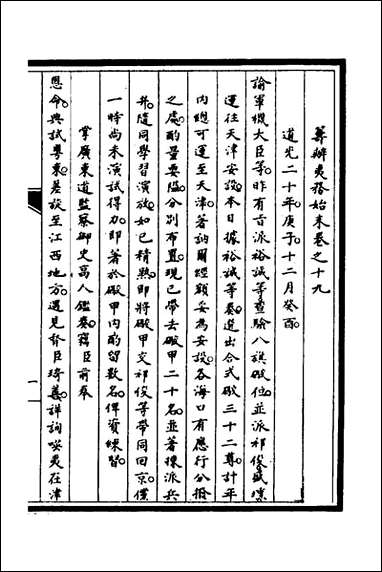 籌辦夷務始末卷之十九
道光二十年庚子十二月癸酉
諭軍機大臣等昨有旨派裕誠等查驗八旗礮位並派祁俊盛燻
運往天津安設本日據裕誠等奏選出合式礮三十二尊計年
內總可運至天津著訥爾經額妥為安設各海口有應行分撥
之處酌量要隘分別布置現已帶去礮甲二十名並著揀派兵
弁隨同學習演放如已精熟即將礮甲交祁俊等帶同回京儻
一時尚未演試得力即著於礮甲內酌留數名俾資練習
掌廣東道監察御史高人鑑奏竊臣前奉
恩命典試粵東差竣至江西地方遇見督臣琦善詳詢㗸夷在津
一